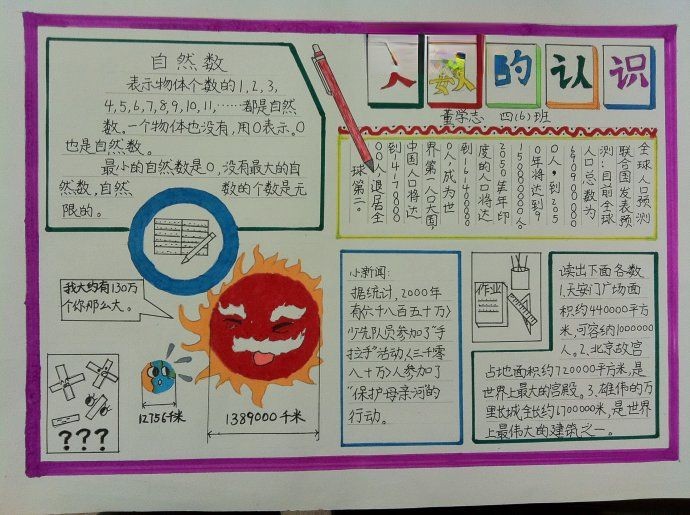 人数的认识
董学志 四(6)班
自然数
表示物体个数的1,2,3,
4,5,6,7,8,9,10,11,……都是自然
数。一个物体也没有,用0表示。0
也是自然数。
最小的自然数是0,没有最大的自
然数,自然 数的个数是无
限的。
全球人口预测
联合国发表预
测:目前全球
人口总数为
0人。到205
0年将达到9
2050年年印
度的人口将达
0人,成为世
界第一人口大国
中国人口将达
00人退居全
球第二。
我大约有130万
个你那么大。
12756千米
1389000千米
???
小新闻:
据统计,2000年
有(六十八百五十万)
少先队员参加了“手
拉手”活动,(三千零
八十万)人参加了
“保护母亲河”的
行动。
作业
读出下面各数
1.天安门广场面
积约440000平方
米,可容纳1000000
人。2、北京故宫
占地面积约720000平方米,是
世界上最大的宫殿。3、雄伟的万
里长城全长约6700000米,是世界
上最伟大的建筑之一。